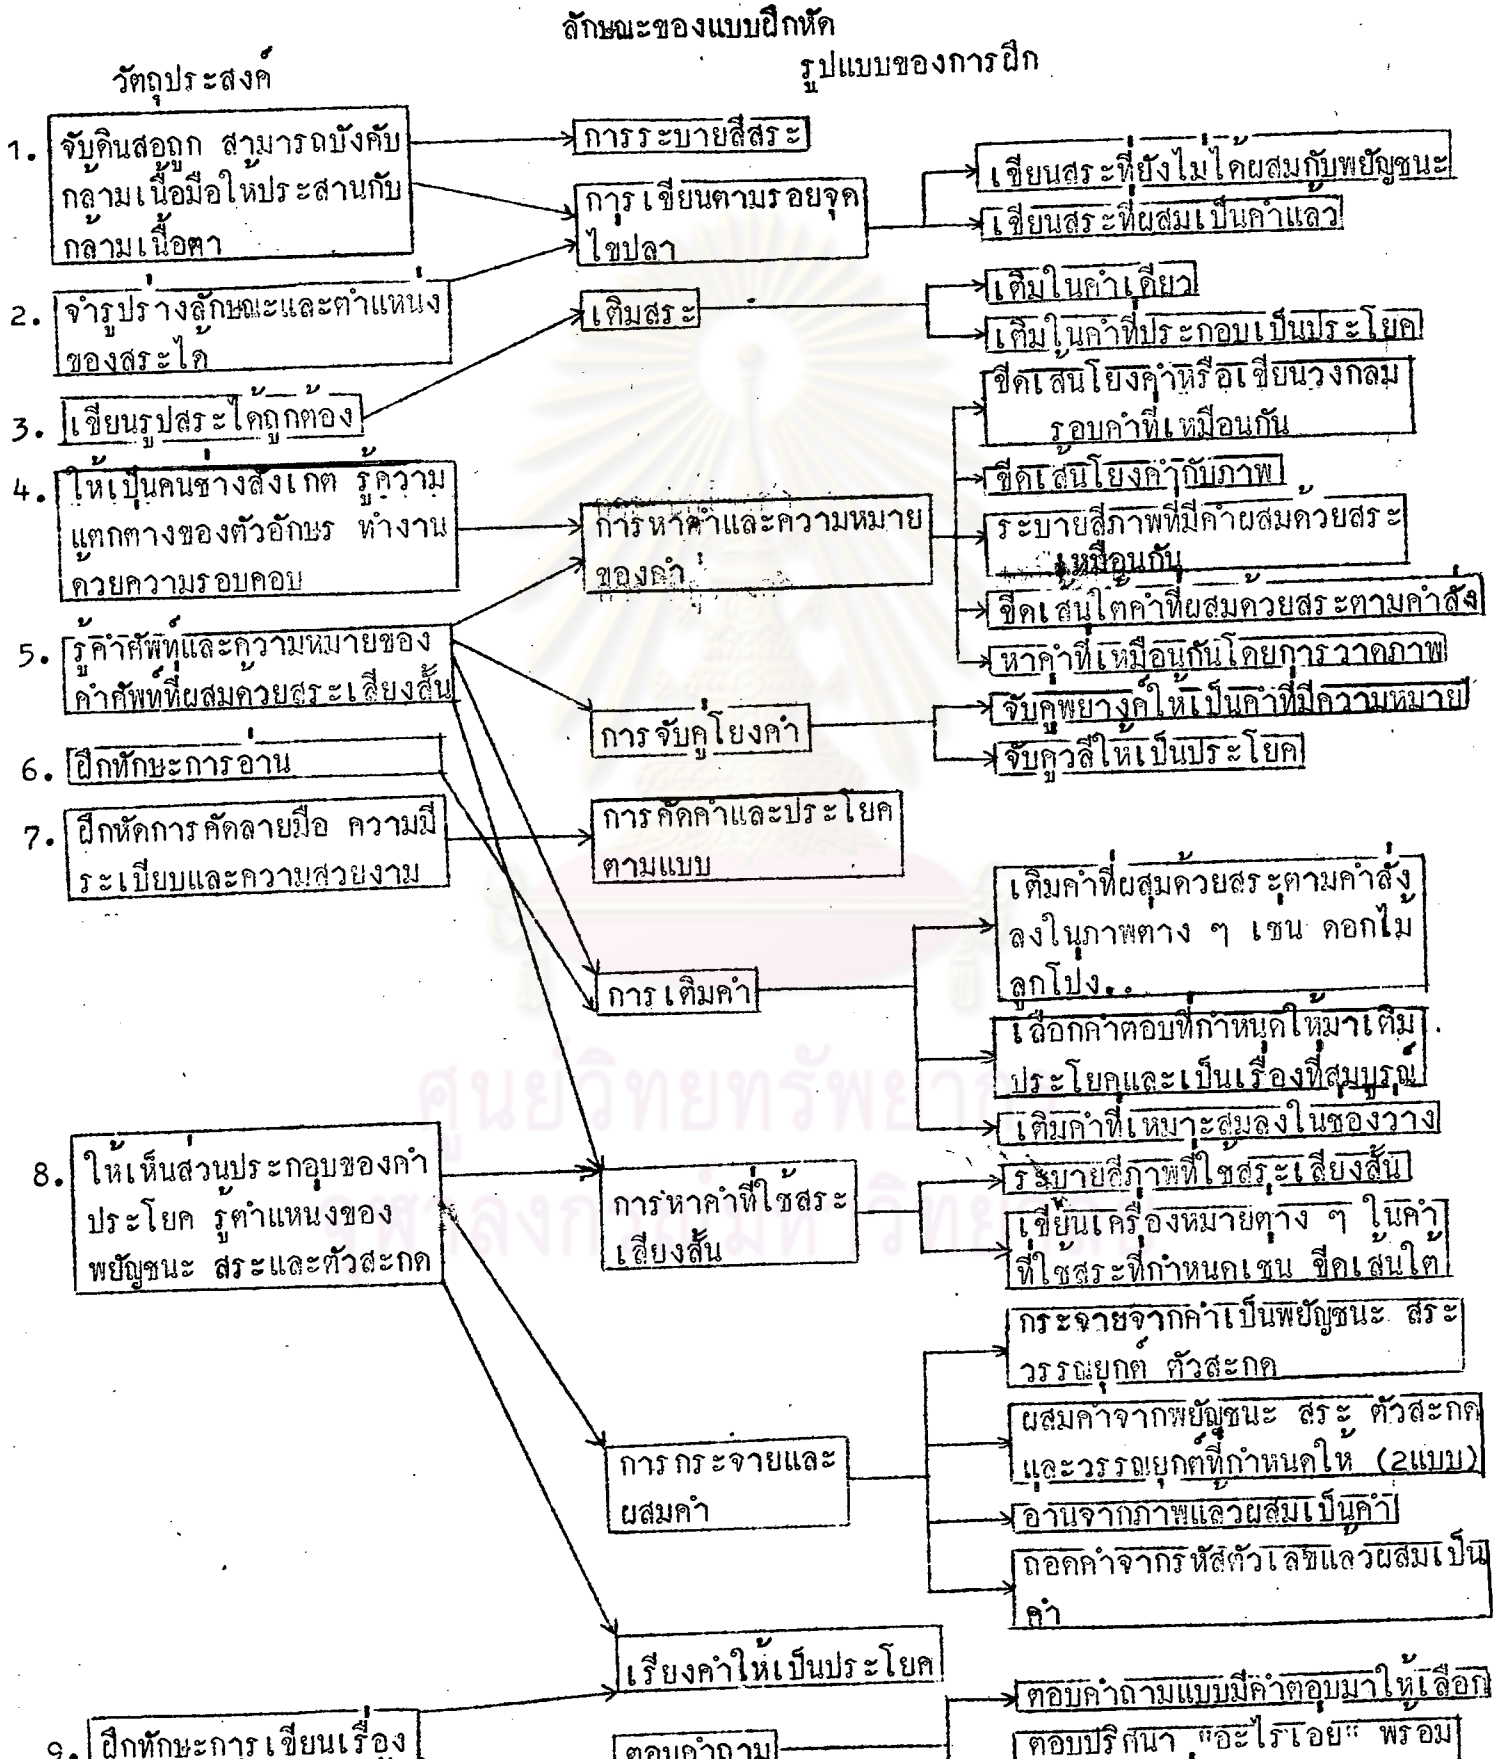 ลักษณะของแบบฝึกหัด
วัตถุประสงค์
รูปแบบของการฝึก
1. จับดินสอถูก สามารถบังคับ
กล้ามเนื้อมือให้ประสานกับ
กล้ามเนื้อตา
2. จำรูปร่างลักษณะและตำแหน่ง
ของสระได้
3. เขียนรูปสระได้ถูกต้อง
4. ให้เป็นคนช่างสังเกต รู้ความ
แตกต่างของตัวอักษร ทำงาน
ด้วยความรอบคอบ
5. รู้คำศัพท์และความหมายของ
คำศัพท์ที่ผสมด้วยสระเสียงสั้น
6. ฝึกทักษะการอ่าน
7. ฝึกหัดการคัดลายมือ ความมี
ระเบียบและความสวยงาม
8. ให้เห็นส่วนประกอบของคำ
ประโยค รู้ตำแหน่งของ
พยัญชนะ สระและตัวสะกด
9. ฝึกทักษะการเขียนเรื่อง
การระบายสีสระ
การเขียนตามรอยจุด
ไข่ปลา
เติมสระ
การหาคำและความหมาย
ของคำ
การจับคู่โยงคำ
การคัดคำและประโยค
ตามแบบ
การเติมคำ
การหาคำที่ใช้สระ
เสียงสั้น
การกระจายและ
ผสมคำ
เรียงคำให้เป็นประโยค
ตอบคำถาม
เขียนสระที่ยังไม่ได้ผสมกับพยัญชนะ
เขียนสระที่ผสมเป็นคำแล้ว
เติมในคำเดียว
เติมในคำที่ประกอบเป็นประโยค
ขีดเส้นโยงคำหรือเขียนวงกลม
รอบคำที่เหมือนกัน
ขีดเส้นโยงคำกับภาพ
ระบายสีภาพที่มีคำผสมด้วยสระ
เหมือนกัน
ขีดเส้นใต้คำที่ผสมด้วยสระตามคำสั่ง
หาคำที่เหมือนกันโดยการวาดภาพ
จับคู่พยางค์ให้เป็นคำที่มีความหมาย
จับคู่วลีให้เป็นประโยค
เติมคำที่ผสมด้วยสระตามคำสั่ง
ลงในภาพต่าง ๆ เช่น ดอกไม้
ลูกโป่ง..
เลือกคำตอบที่กำหนดให้มาเติม
ประโยคและเป็นเรื่องที่สมบูรณ์
เติมคำที่เหมาะสมลงในช่องว่าง
ระบายสีภาพที่ใช้สระเสียงสั้น
เขียนเครื่องหมายต่าง ๆ ในคำ
ที่ใช้สระที่กำหนดเช่น ขีดเส้นใต้
กระจายจากคำเป็นพยัญชนะ สระ
วรรณยุกต์ ตัวสะกด
ผสมคำจากพยัญชนะ สระ ตัวสะกด
และวรรณยุกต์ที่กำหนดให้ (2แบบ)
อ่านจากภาพแล้วผสมเป็นคำ
ถอดคำจากรหัสตัวเลขแล้วผสมเป็น
คำ
ตอบคำถามแบบมีคำตอบมาให้เลือก
ตอบปริศนา "อะไรเอ่ย" พร้อม
ศูนย์วิทยทรัพยากร
จุฬาลงกรณ์มหาวิทยาลัย